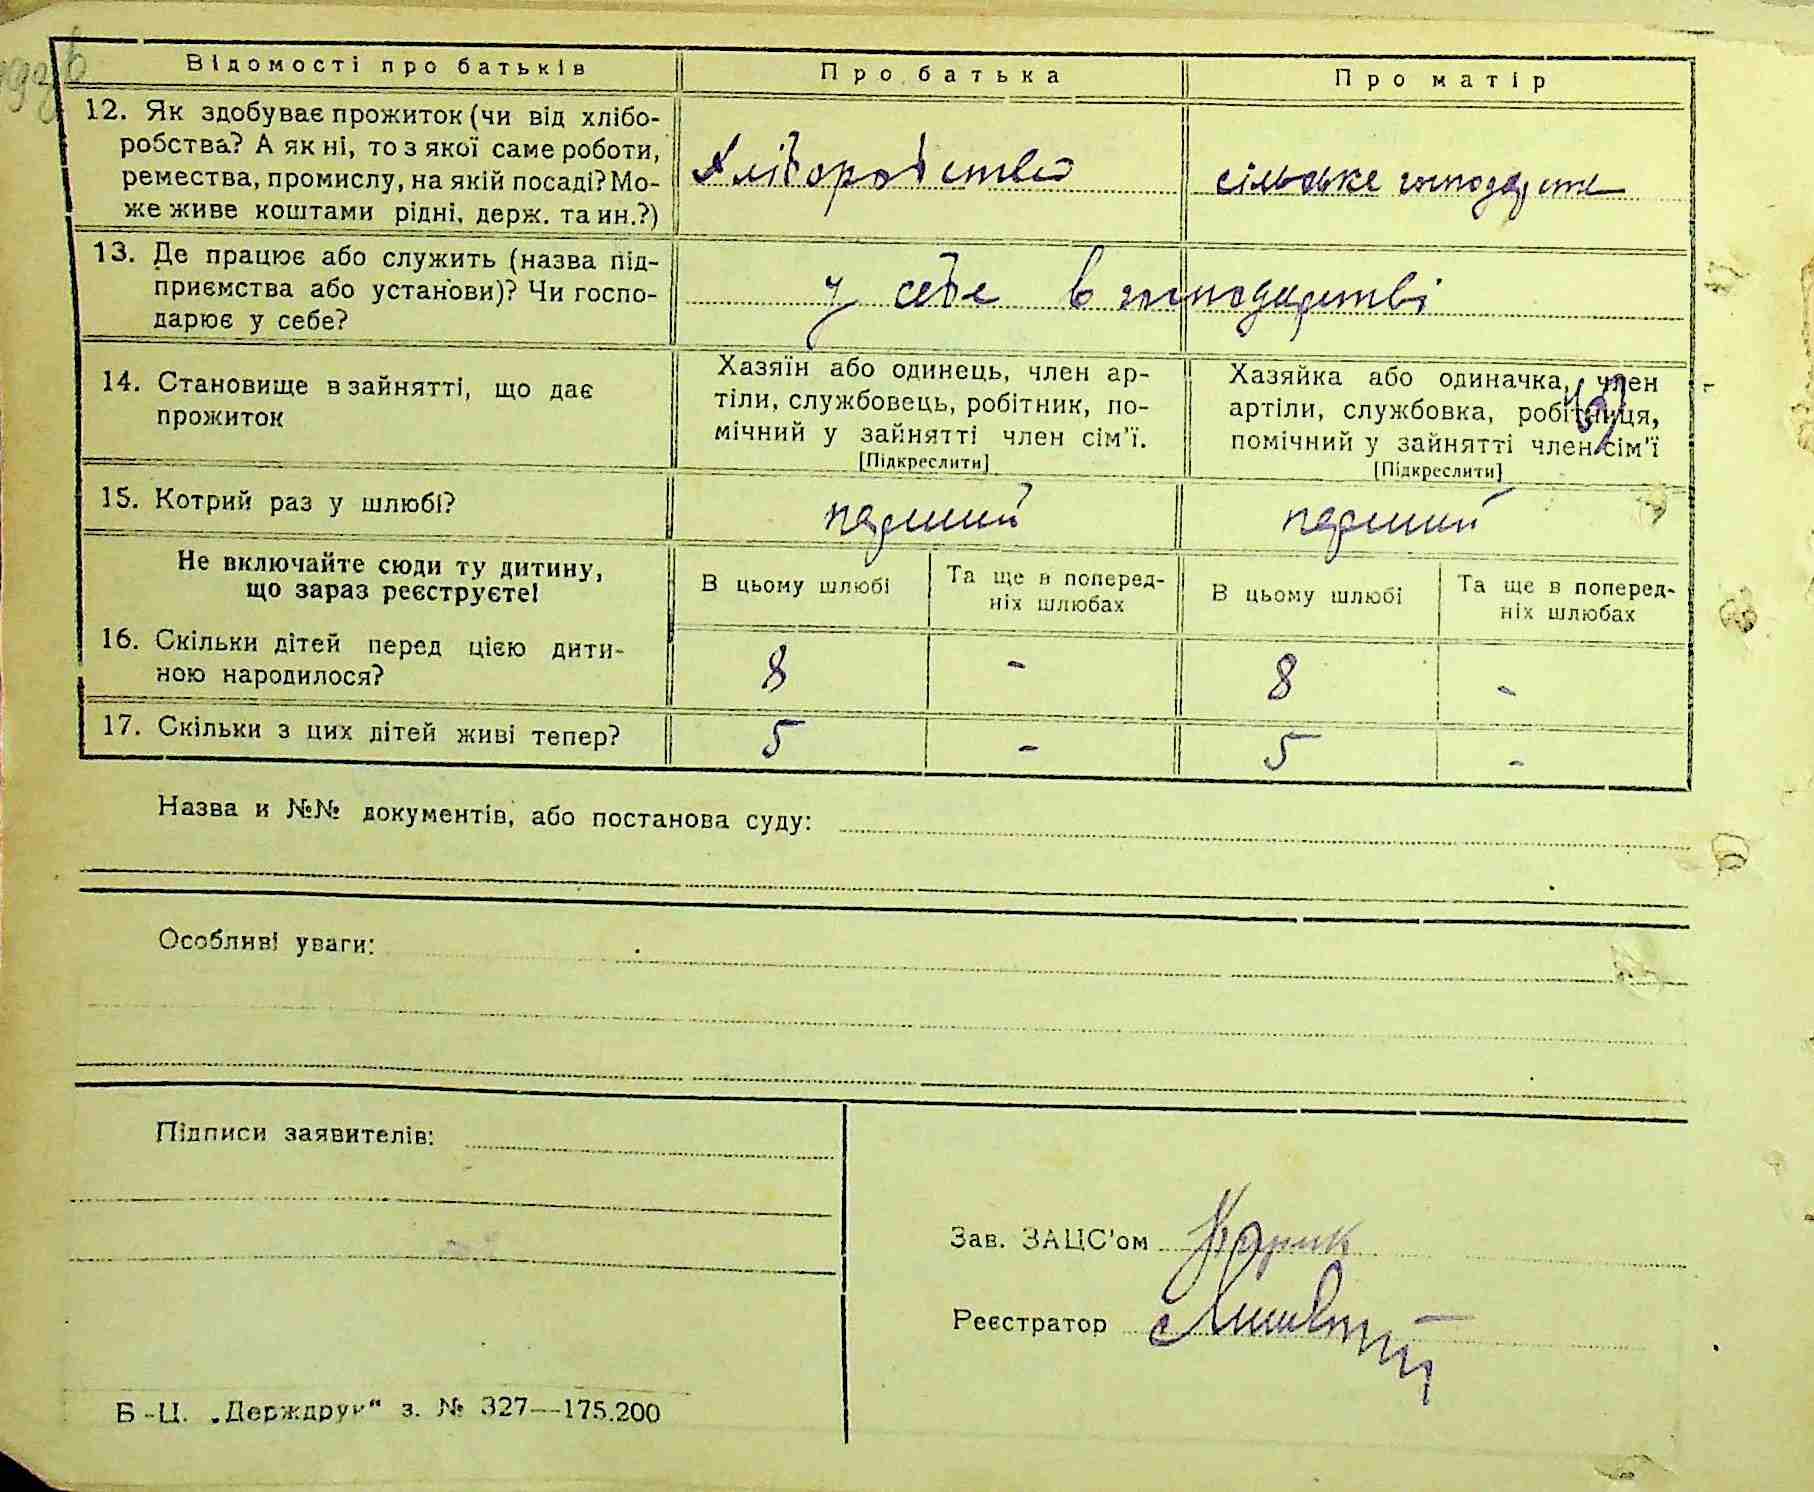 Відомості про батьків Про батька Про матір
12. Як здобуває прожиток (чи від хлібо-
робства? А як ні, то з якої саме роботи,
ремества, промислу, на якій посаді? Мо-
же живе коштами рідні, держ. та ин.?)
Хліборобство сільське господарство
13. Де працює або служить (назва під-
приємства або установи)? Чи госпо-
дарює у себе?
у себе в господарстві
14. Становище в зайнятті, що дає
прожиток
Хазяїн або одинець, член ар-
тіли, службовець, робітник, по-
мічний у зайнятті член сім'ї.
[Підкреслити]
Хазяйка або одиначка, член
артіли, службовка, робітниця,
помічний у зайнятті член сім'ї
[Підкреслити]
15. Котрий раз у шлюбі? перший перший
Не включайте сюди ту дитину,
що зараз реєструєте!
В цьому шлюбі Та ще в поперед-
ніх шлюбах В цьому шлюбі Та ще в поперед-
ніх шлюбах
16. Скільки дітей перед цією дити-
ною народилося?
8 - 8 -
17. Скільки з цих дітей живі тепер? 5 - 5 -
Назва и №№ документів, або постанова суду:
Особливі уваги:
Підписи заявителів:
Зав. ЗАЦС'ом
Реєстратор
Б-Ц. „Держдрук“ з. № 327—175.200